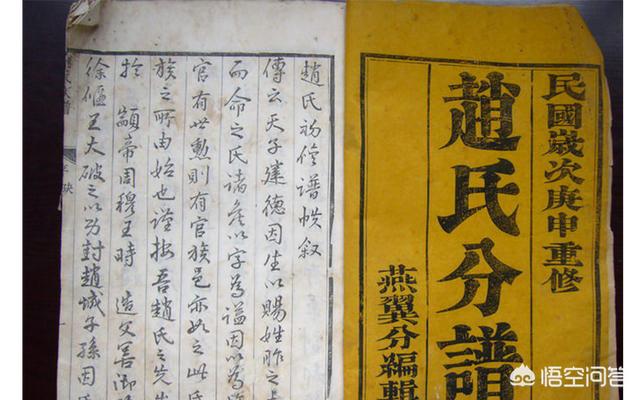 民國歲次庚申重修
趙氏分譜
燕翼分編輯
趙氏初修譜帙叙
傳云天子建德因生以賜姓胙之
而命之氏諸矦以字為謚因以為
官有世勲則有官族邑亦如之此氏
族之所由始也謹按吾趙氏之先
於 顓帝周穆王時 造父善御
徐偃王大破之以功封趙城子孫因氏
悟空问答